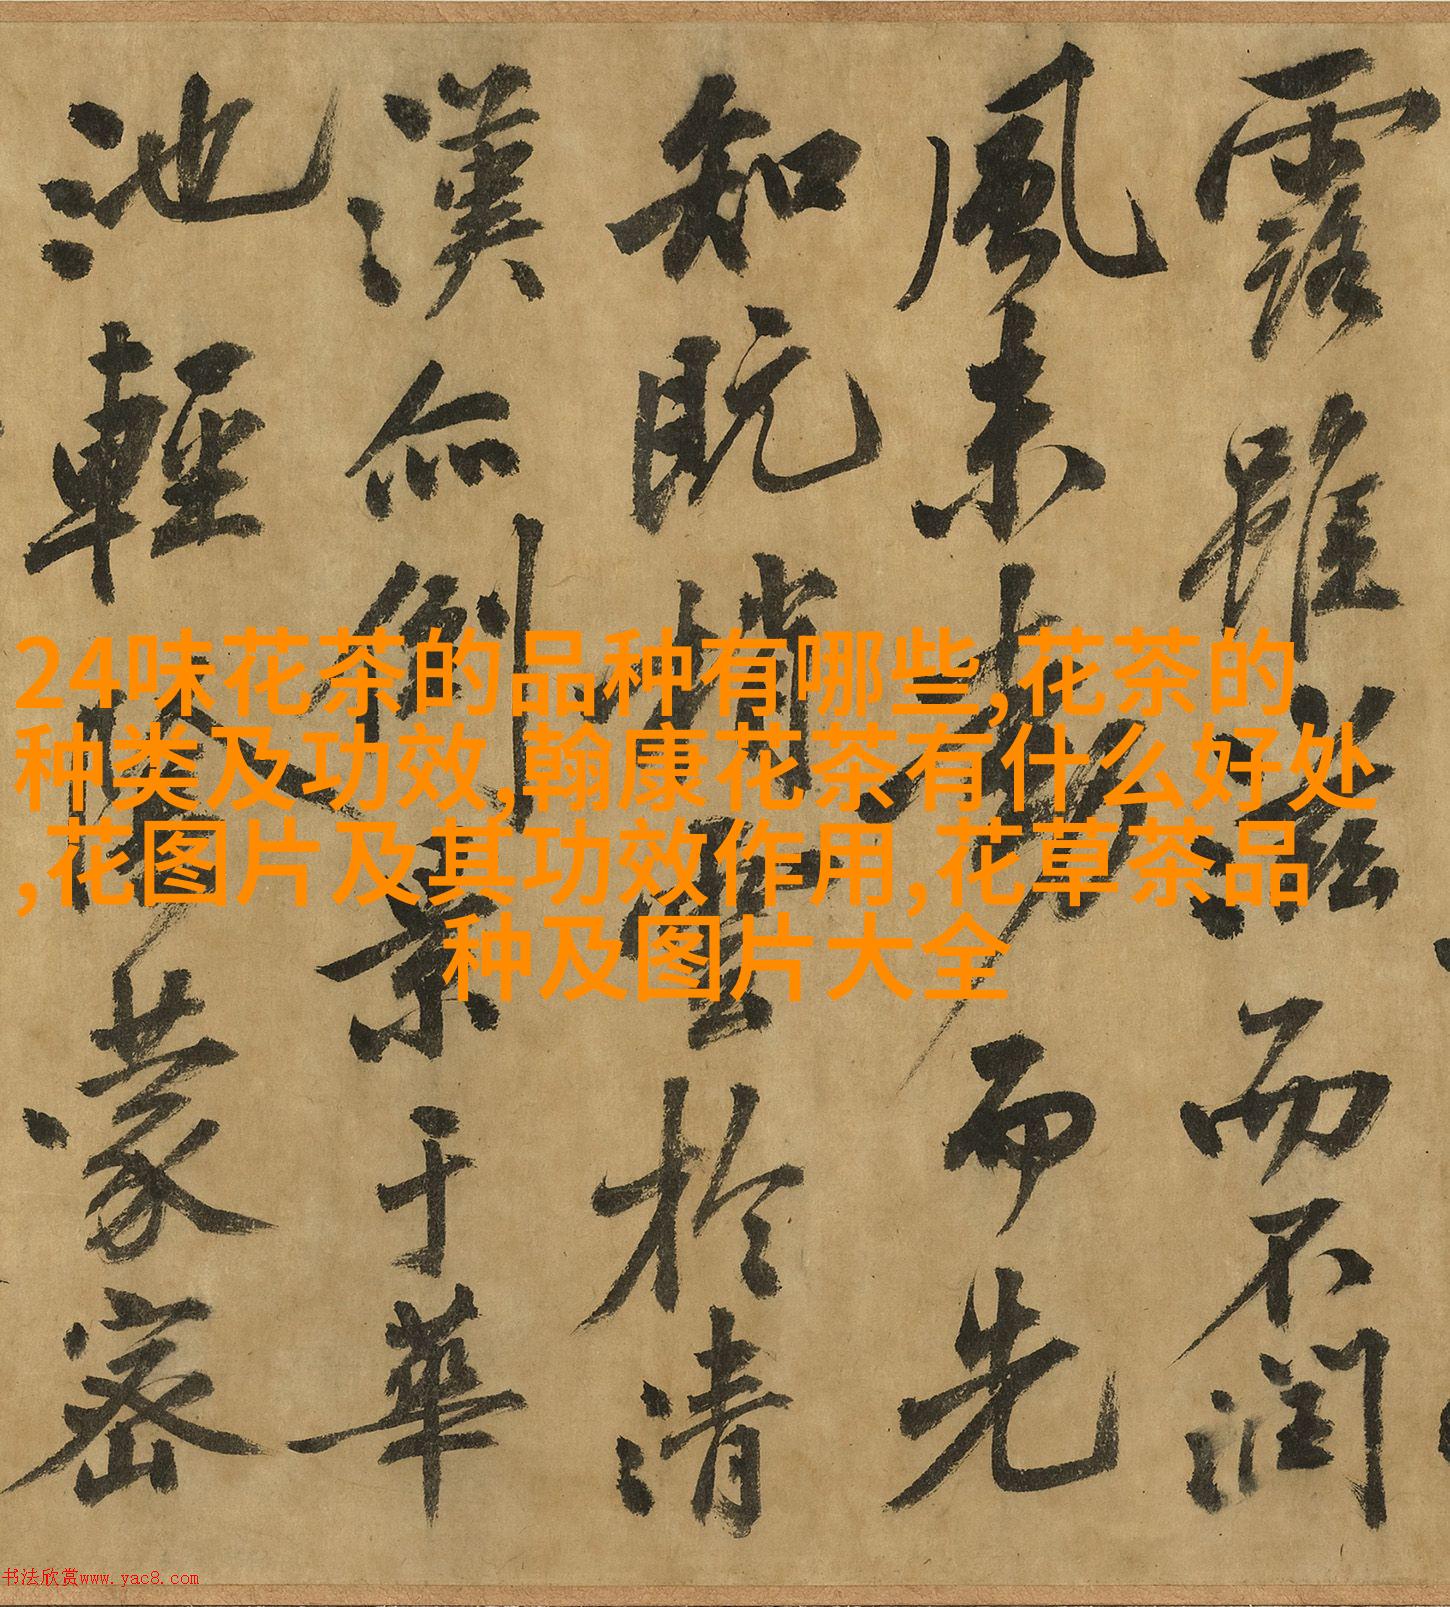 露雖滋而不潤
風未動而先
知既捎雲於清
漢亦倒景于華
池輕陰蒙密
24味花茶的品种有哪些,花茶的
种类及功效,翰康花茶有什么好处
,花图片及其功效作用,花草茶品
种及图片大全
书法欣赏www.yac8.com